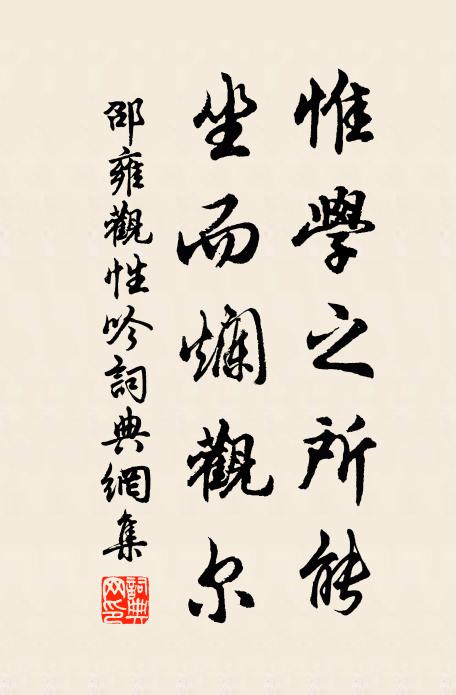 惟學之所能
坐而爛觀尔
邵雍觀性吟詞典網集
詞典网印